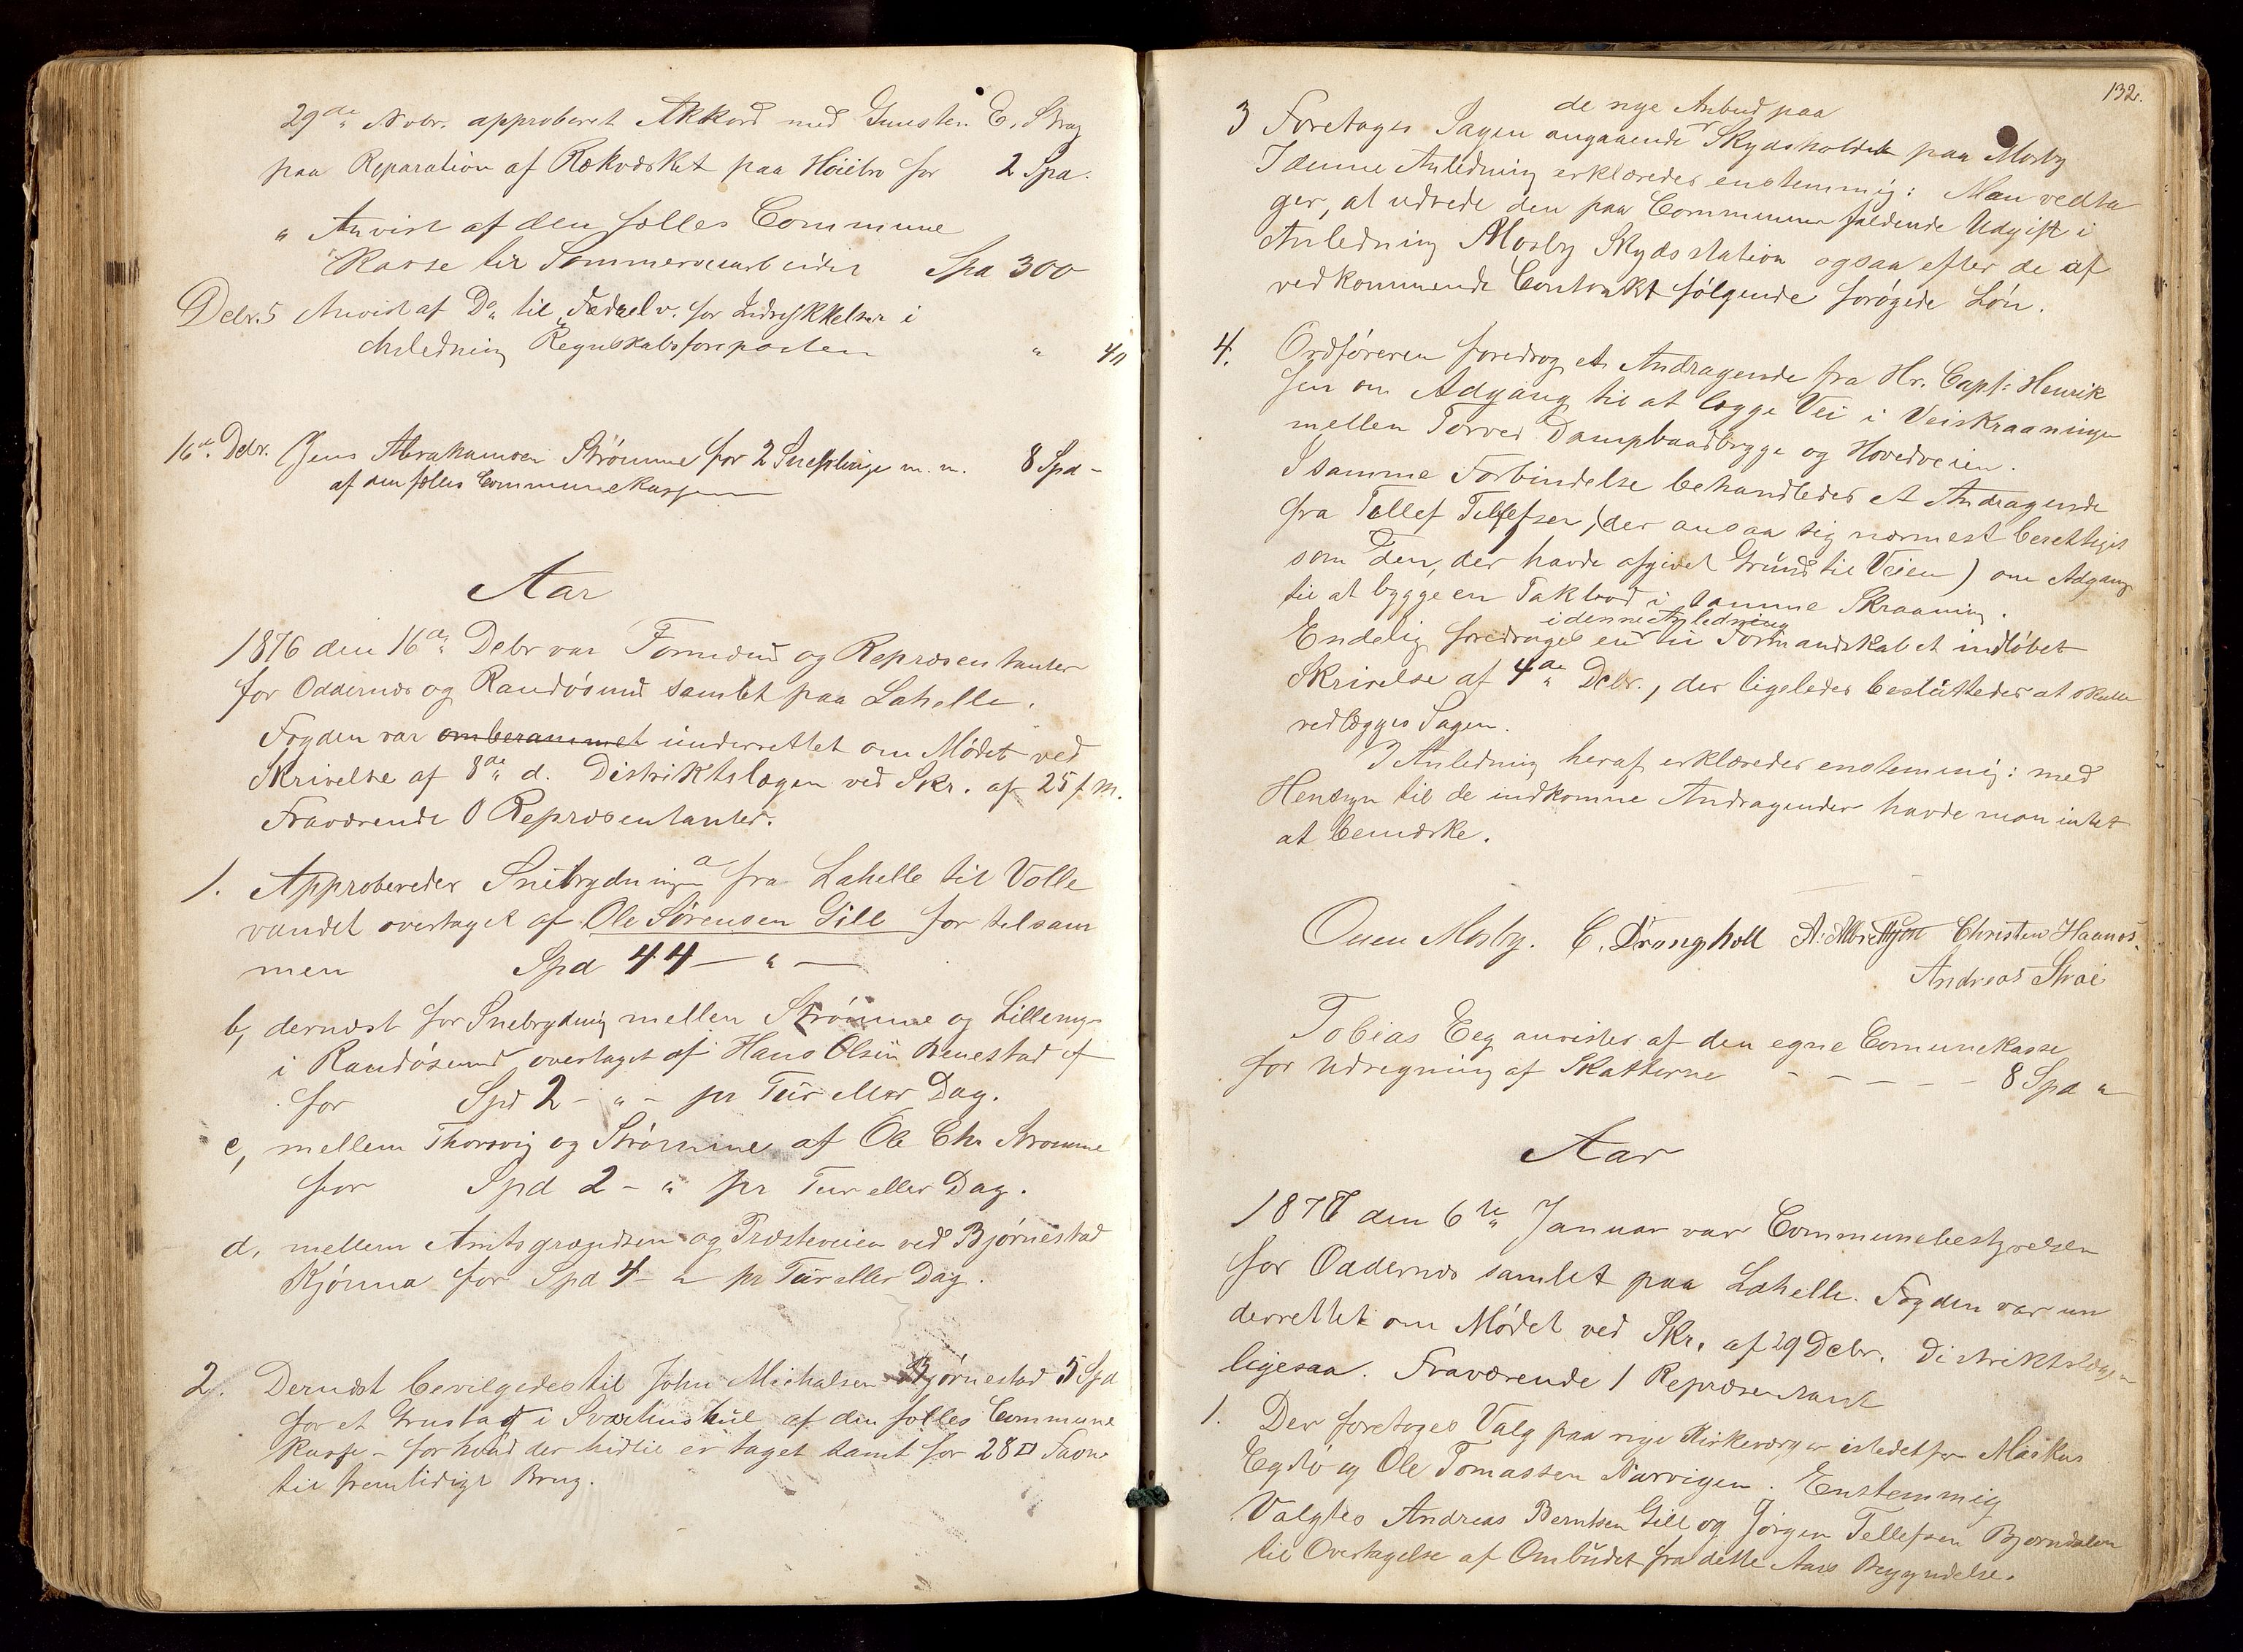 29de Novbr. approberet Akkord med Gunsten E. Stray
paa Reparation af Rækværket paa Høiebro for 2 Spd.
" Anvist af den fælles Commune
Kasse til Sommerveiarbeider Spd 300
Debr. 5 Anvist af Do til Fædrel.v. for Indrykkelser i
Anledning Regnskabsforeposten " 40
16de Debr. Jens Abrahamsen Strømme for 2 Sneplouge m. m. 8 Spd -
af den fælles Communekasse
Aar
1876 den 16de Debr var Formænd og Repræsentanter
for Oddernæs og Randøsund samlet paa Lahelle.
Fogden var omberammet underrettet om Mødet ved
Skrivelse af 8de d. Distriktslægen ved Skr. af 25 f. M.
Fraværende 0 Repræsentanter.
1. Approberedes Snebrydningen a fra Lahelle til Volle
vandet overtaget af Ole Sørensen Gill for tilsam
men Spd 44 - " -
b, dernæst for Snebrydning mellem Strømme og Lilleng-
i Randøsund overtaget af Hans Olsen Benestad
for Spd 2 - " - pr Tur eller Dag.
c, mellem Thorsvig og Strømme af Ole Chr Strømme
for Spd 2 - " pr Tur eller Dag.
d, mellem Amtsgrændsen og Præsteveien ved Bjørnestad
Kjønna for Spd 4 - " pr Tur eller Dag.
2. Dernæst bevilgedes til John Michalsen Bjørnestad 5 Spd
for et Grustag i af den fælles Commune
Kasse - for hvad der hidtil er taget samt for 28 □ Favne
til fremtidigt Brug.
132.
de nye Anbud paa
3 Foretages Sagen angaaende Skydsholdet paa Mosby
I denne Anledning erklæredes enstemmig: Man vedta
ger, at udrede den paa Communen faldende Udgift i
Anledning Mosby Skydsstation ogsaa efter de af
vedkommende Contrakt følgende forøgede Løn.
4. Ordføreren foredrog et Andragende fra Hr. Capt: Henrik
sen om Adgang til at lægge Vei i Veiskraaningen
mellem Torvei Dampbaadbrygge og Hovedveien.
I samme Forbindelse behandledes et Andragende
fra Tellef Tellefsen, (der ansaa sig nærmest berettiget
som den, der havde afgivet Grund til Veien) om Adgang
til at bygge en Takbod i samme Skraaning.
i denne Anledning
Endelig foredroges en til Formandskabet indløbet
Skrivelse af 4de Debr., der ligeledes besluttedes at skulle
vedlægges Sagen.
I Anledning heraf erklæredes enstemmig: med
Hensyn til de indkomne Andragender havde man intet
at bemærke.
Ouen Mosby. C. Drangholt A. Albretsen Christen Haanes.
Andreas Strai
Tobias Eeg anvistes af den egne Comunekasse
for Udregning af Skatterne - - - - - 8 Spd "
Aar
1877 den 6te Januar var Communebestyrelsen
for Oddernæs samlet paa Lahelle. Fogden var un
derrettet om Mødet ved Skr. af 29 Debr. Distriktslægen
ligesaa. Fraværende 1 Repræsentant
1. Der foretoges Valg paa nye Kirkeværger istedetfor Markus
Egdø og Ole Tomassen Narvigen. Enstemmig
Valgtes Andreas Berntsen Gill og Jørgen Tellefsen Bjorndalen
til Overtagelse af Ombudet fra dette Aars Begyndelse.